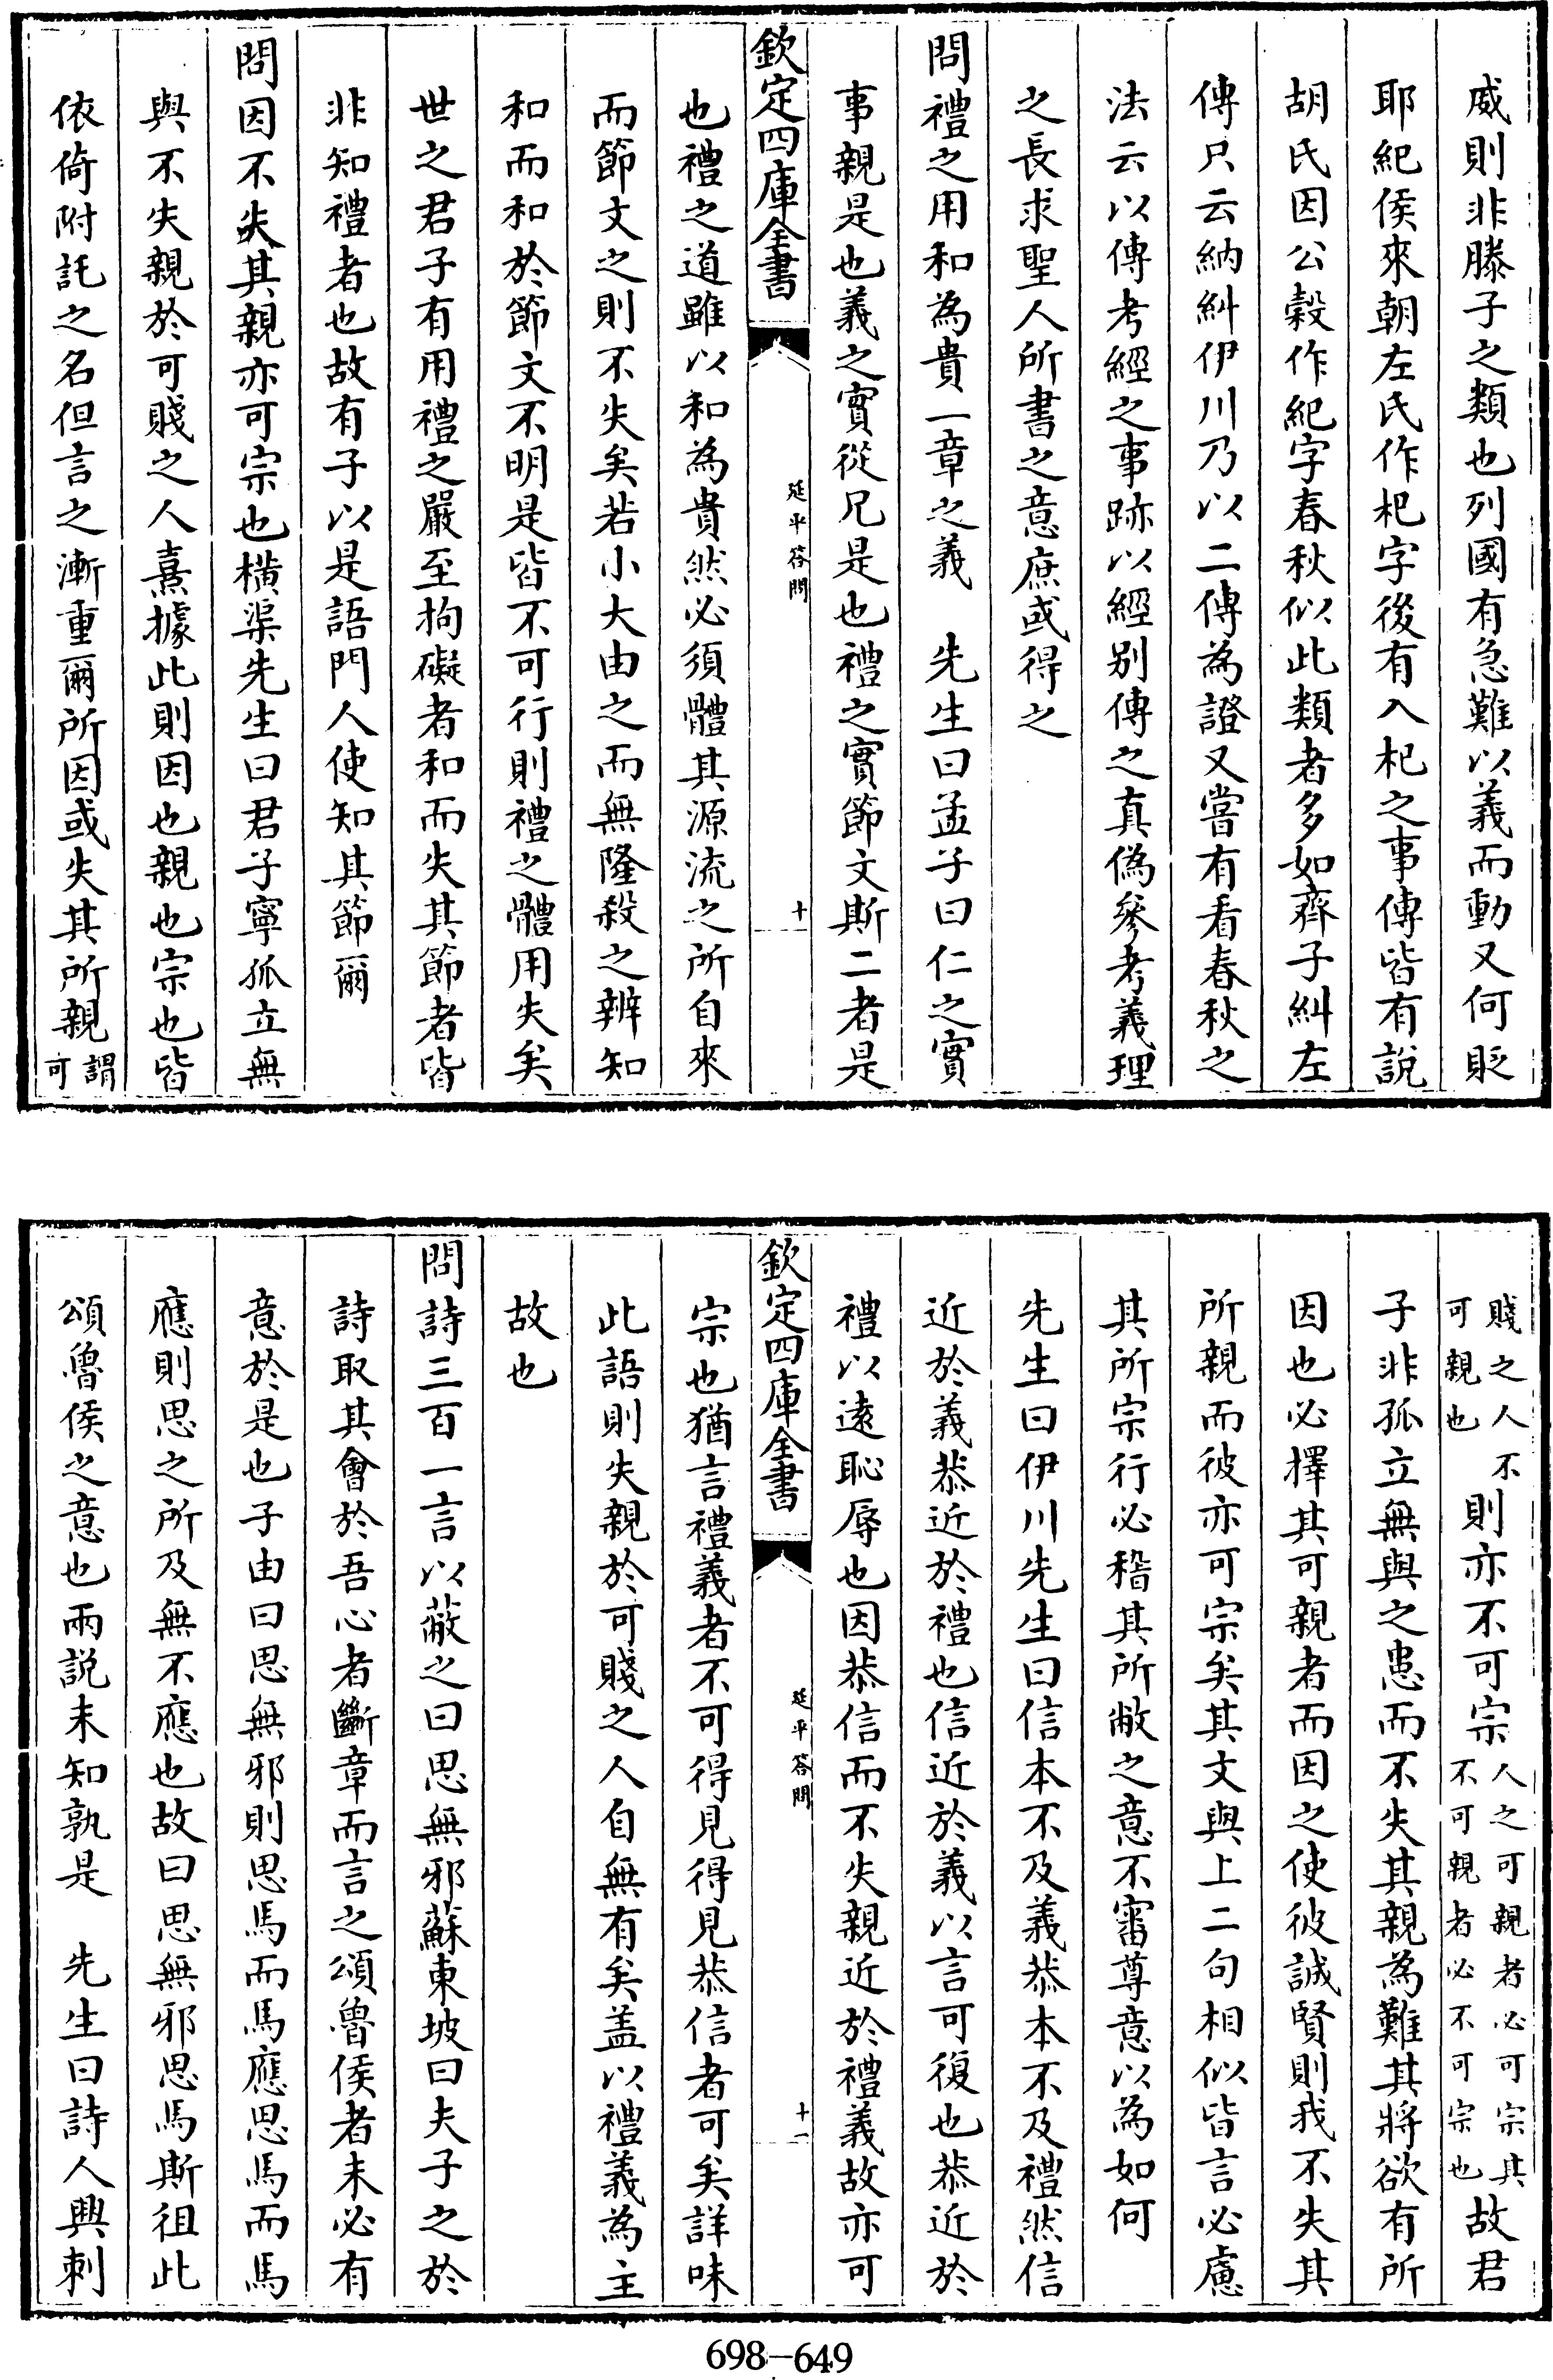 威則非滕子之類也列國有急難以義而動又何貶
耶紀侯來朝左氏作杞字後有入杞之事傳皆有說
胡氏因公榖作紀字春秋似此類者多如齊子糾左
傳只云納糾伊川乃以二傳為證又嘗有看春秋之
法云以傳考經之事跡以經別傳之真偽參考義理
之長求聖人所書之意庶或得之
問禮之用和為貴一章之義　先生曰孟子曰仁之實
事親是也義之實從兄是也禮之實節文斯二者是
欽定四庫全書
延平答問
十
也禮之道雖以和為貴然必須體其源流之所自來
而節文之則不失矣若小大由之而無隆殺之辨知
和而和於節文不明是皆不可行則禮之體用失矣
世之君子有用禮之嚴至拘礙者和而失其節者皆
非知禮者也故有子以是語門人使知其節爾
問因不失其親亦可宗也橫渠先生曰君子寧孤立無
與不失親於可賤之人熹據此則因也親也宗也皆
依倚附託之名但言之漸重爾所因或失其所親謂
可
賤之人不
可親也
則亦不可宗
人之可親者必可宗其
不可親者必不可宗也
故君
子非孤立無與之患而不失其親為難其將欲有所
因也必擇其可親者而因之使彼誠賢則我不失其
所親而彼亦可宗矣其文與上二句相似皆言必慮
其所宗行必稽其所敝之意不審尊意以為如何
先生曰伊川先生曰信本不及義恭本不及禮然信
近於義恭近於禮也信近於義以言可復也恭近於
禮以遠恥辱也因恭信而不失親近於禮義故亦可
欽定四庫全書
延平答問
十一
宗也猶言禮義者不可得見得見恭信者可矣詳味
此語則失親於可賤之人自無有矣盖以禮義為主
故也
問詩三百一言以蔽之曰思無邪蘇東坡曰夫子之於
詩取其會於吾心者斷章而言之頌魯侯者未必有
意於是也子由曰思無邪則思馬而馬應思馬而馬
應則思之所及無不應也故曰思無邪思馬斯徂此
頌魯侯之意也兩說未知孰是　先生曰詩人興刺
698-649